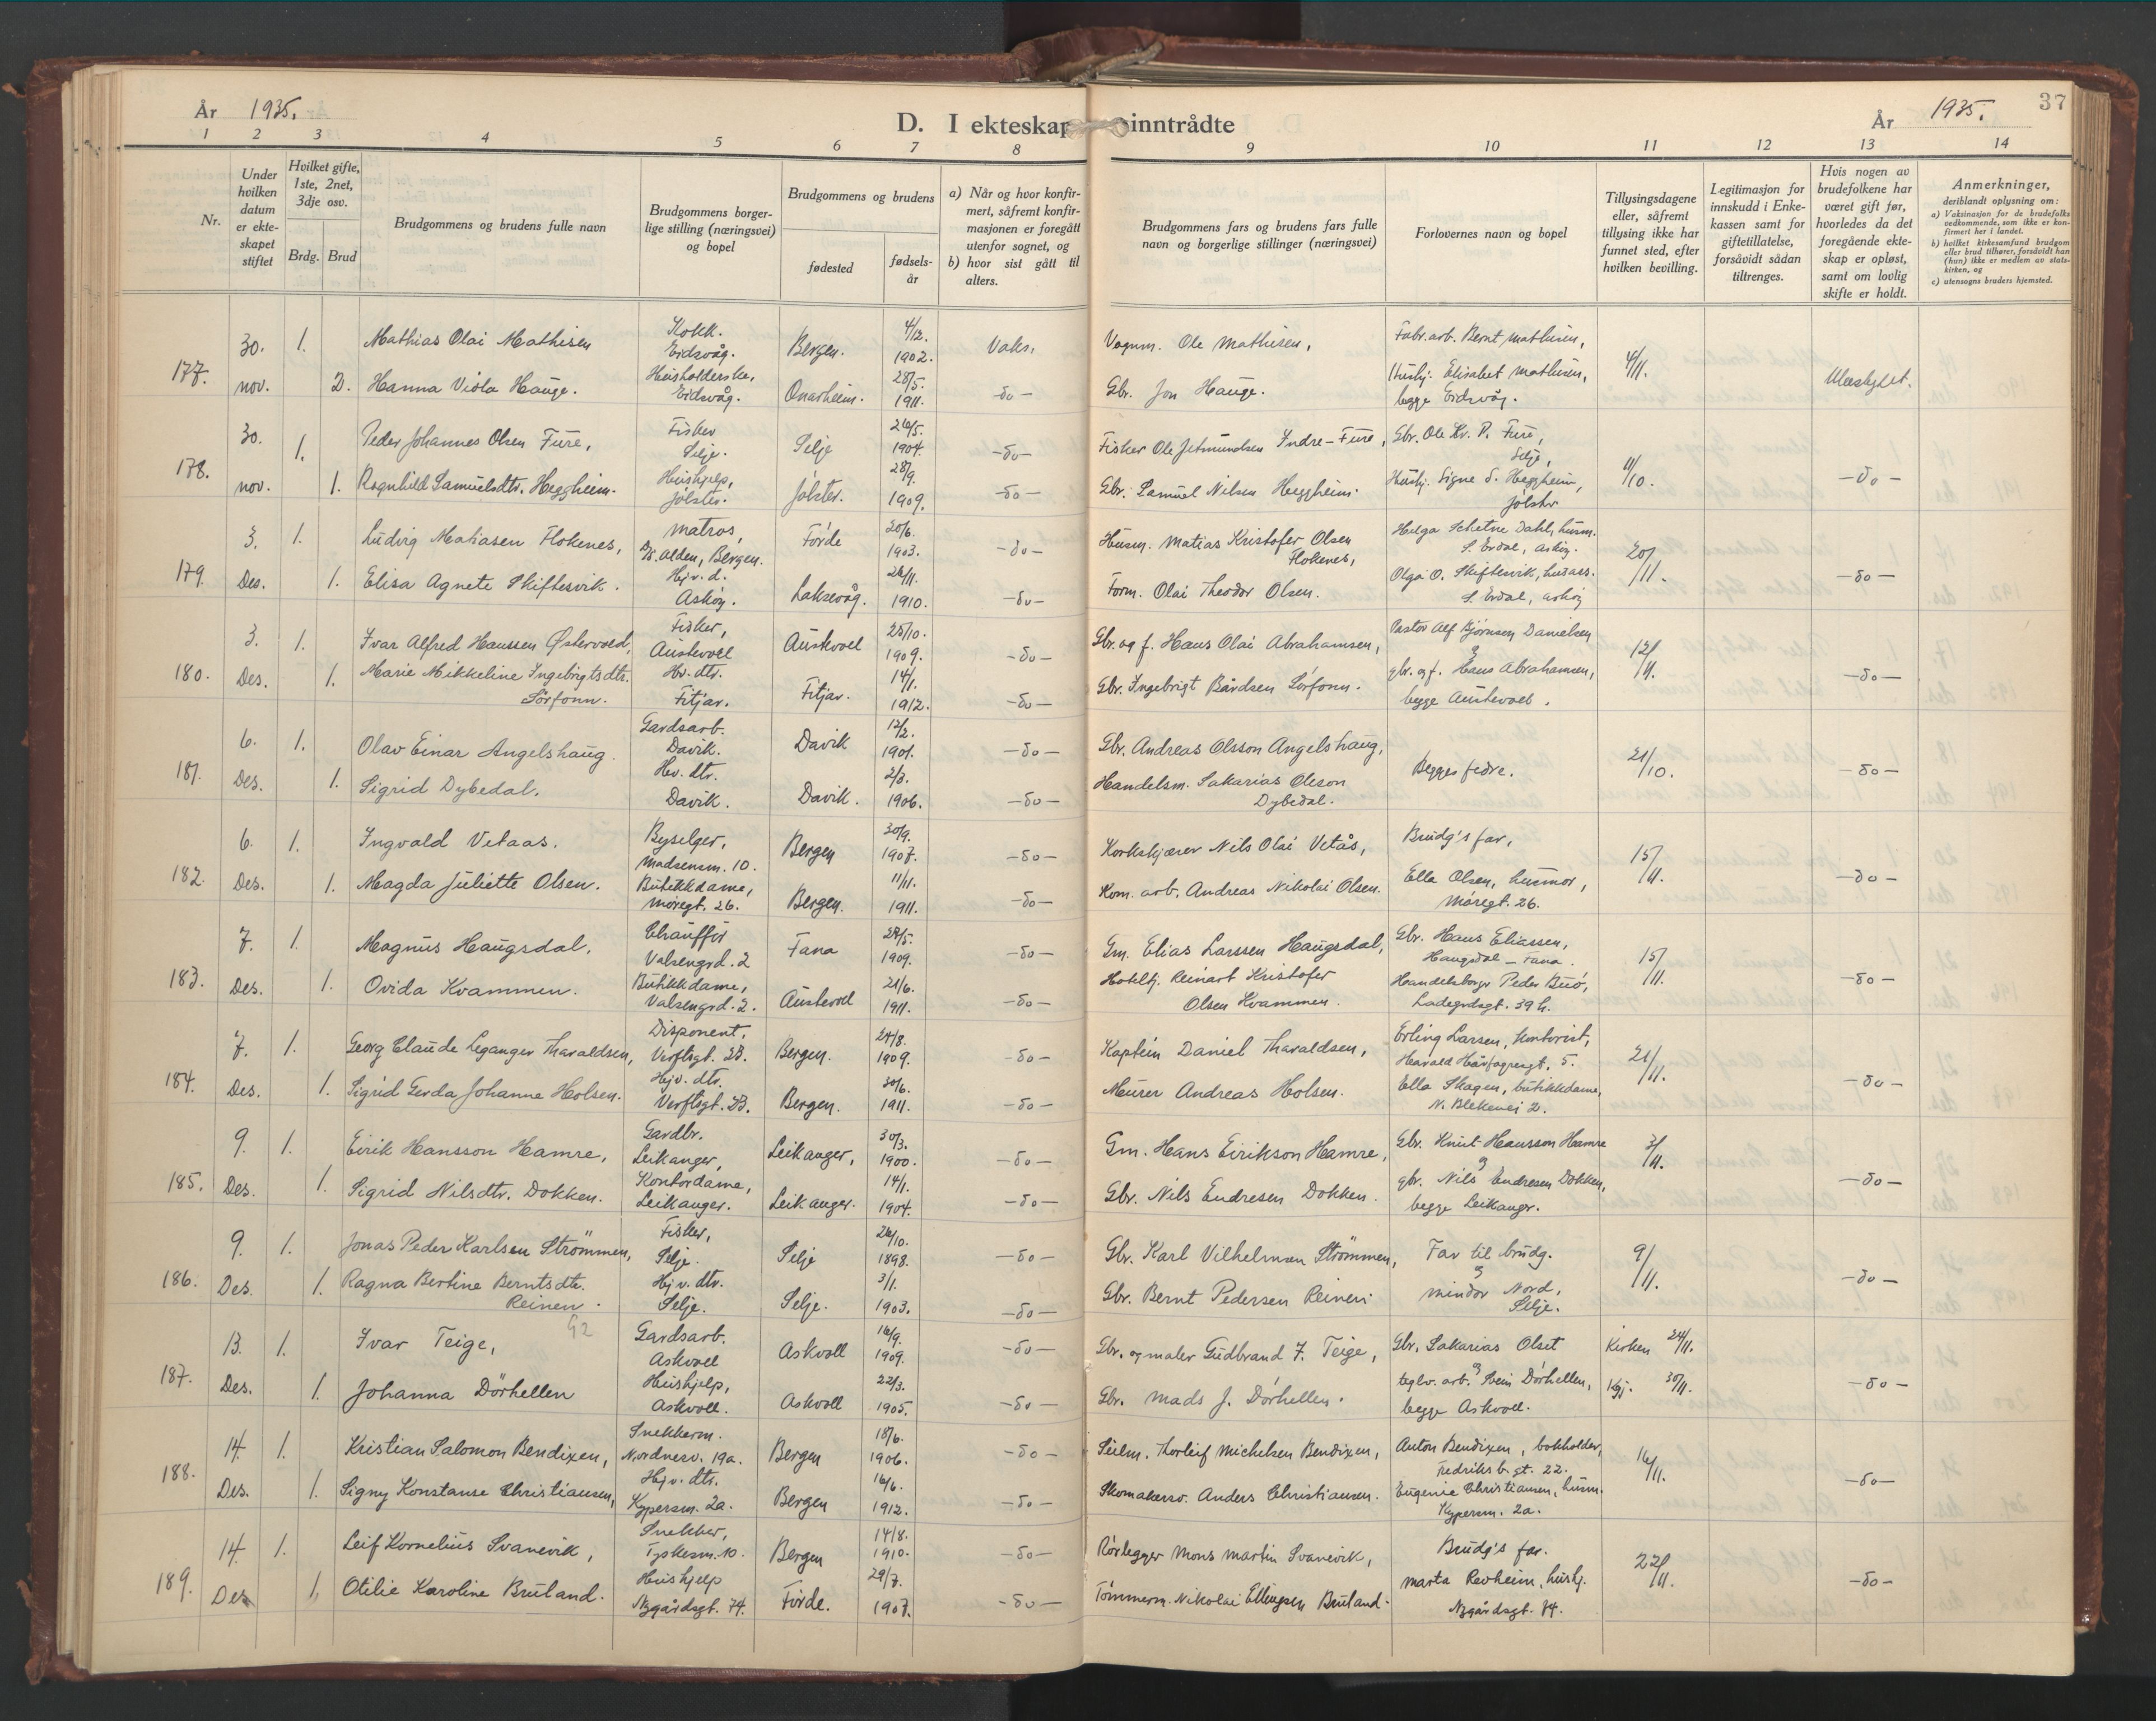 År 1935.
D. I ekteskap inntrådte
År 1935.
37
1 2 3 4 5 6 7 8 9 10 11 12 13 14
Nr.
Under hvilken datum er ekteskapet stiftet
Hvilket gifte, 1ste, 2net, 3dje osv.
Brdg. Brud
Brudgommens og brudens fulle navn
Brudgommens borgerlige stilling (næringsvei) og bopel
Brudgommens og brudens
fødested
fødselsår
a) Når og hvor konfirmert, såfremt konfirmasjonen er foregått utenfor sognet, og
b) hvor sist gått til alters.
Brudgommens fars og brudens fars fulle navn og borgerlige stillinger (næringsvei)
Forlovernes navn og bopel
Tillysingsdagene eller, såfremt tillysing ikke har funnet sted, efter hvilken bevilling.
Legitimasjon for innskudd i Enkekassen samt for giftetillatelse, forsåvidt sådan tiltrenges.
Hvis nogen av brudefolkene har været gift før, hvorledes da det foregående ekteskap er opløst, samt om lovlig skifte er holdt.
Anmerkninger, deriblandt oplysning om:
a) Vaksinasjon for de brudefolks vedkommende, som ikke er konfirmert her i landet.
b) hvilket kirkesamfund brudgom eller brud tilhører, forsåvidt han (hun) ikke er medlem av statskirken, og
c) utensogns bruders hjemsted.
177. 30. nov.
1. Mathias Olai Mathisen Kokk. Eidsvåg. Bergen. 4/12. 1902. Vaks. Vognm. Ole Mathisen, Fabr.arb. Bernt Mathisen,
2. Hanna Viola Hauge. Husholderske, Eidsvåg. Onarheim. 28/5. 1911. -do- Gbr. Jon Hauge. Hushj. Elisabet Mathisen, begge Eidsvåg. 4/11. Uløskylet.
178. 30. nov.
1. Peder Johannes Olsen Fure, Fisker Selje. Selje 26/5. 1904. -do- Fisker Ole Jetmundsen Indre-Fure, Gbr. Ole Kr. P. Fure, Selje,
1. Ragnhild Samuelsdtr. Heggheim. Hushjelp, Jølster. Jølster. 28/9. 1909. -do- Gbr. Samuel Nilsen Heggheim. Hushj. Signe S. Heggheim, Jølster 11/10. -do-
179. 3. Des.
1. Ludvig Matiasen Flokenes, Matros, D/S. Alden, Bergen. Førde 20/6. 1903. -do- Husm. Matias Kristofer Olsen Flokenes, Helga Schetne Dahl, husm. S. Erdal, Askøy.
1. Elisa Agnete Skiftesvik. Hjv. d. Askøy. Laksevåg. 26/11. 1910. -do- Form. Olai Theodor Olsen. Olga O. Skiftesvik, husass. S. Erdal, Askøy 20/11. -do-
180. 3. Des.
1. Ivar Alfred Hanssen Østervold, Fisker, Austevoll Austevoll 25/10. 1909. -do- Gbr. og f. Hans Olai Abrahamsen, Pastor Alf Bjørnsen Danielsen
1. Marie Mikkeline Ingebrigtsdtr. Sørfonn. Hv. dtr. Fitjar. Fitjar. 14/1. 1912. -do- Gbr. Ingebrigt Bårdsen Sørfonn. & gbr. og f. Hans Abrahamsen, begge Austevoll. 12/11. -do-
181. 6. Des.
1. Olav Einar Angelshaug. Gardsarb. Davik. Davik 12/2. 1901. -do- Gbr. Andreas Olsson Angelshaug,
1. Sigrid Dybedal. Hv. dtr. Davik. Davik. 2/3. 1906. -do- Handelsm. Sakarias Oleson Dybedal. Begges fedre. 21/10. -do-
182. 6. Des.
1. Ingvald Vetaas. Byselger, Madsensm. 10. Bergen 30/9. 1907. -do- Korkskjærer Nils Olai Vetås, Brudg's far,
1. Magda Juliette Olsen. Butikkdame, Møregt. 26. Bergen. 11/11. 1911. -do- Kom. arb. Andreas Nikolai Olsen. Ella Olsen, husmor, Møregt. 26. 15/11. -do-
183. 7. Des.
1. Magnus Haugsdal. Chauffør Valsengrd. 2 Fana 28/5. 1909. -do- Gm. Elias Larssen Haugsdal, Gbr. Hans Eliassen, Haugsdal - Fana.
1. Ovida Kvammen. Butikkdame, Valsengrd. 2. Austevoll 21/6. 1911. -do- Hotellj. Reinart Kristofer Olsen Kvammen. Handelsborger Peder Buø, Ladegrdsgt. 39 h. 15/11. -do-
184. 7. Des.
1. Georg Claude Leganger Tharaldsen, Disponent, Verftsgt. 2B. Bergen. 24/8. 1909. -do- Kaptein Daniel Tharaldsen, Erling Larsen, kontorist, Harald Hårfagresgt. 5.
1. Sigrid Gerda Johanne Holsen. Hjv. dtr. Verftsgt. 2B. Bergen. 30/6. 1911. -do- Murer Andreas Holsen. Ella Skagen, butikkdame, N. Blekevei 2. 21/11. -do-
185. 9. Des.
1. Eirik Hansson Hamre, Gardbr. Leikanger, Leikanger, 30/3. 1900. -do- Gm. Hans Eirikson Hamre, Gbr. Knut Hansson Hamre
1. Sigrid Nilsdtr. Dokken. Kontordame, Leikanger. Leikanger. 14/1. 1904. -do- Gbr. Nils Endresen Dokken. & gbr. Nils Endresen Dokken, begge Leikanger. 3/11. -do-
186. 9. Des.
1. Jonas Peder Karlsen Strømmen, Fisker, Selje. Selje 26/10. 1898. -do- Gbr. Karl Vilhelman Strømmen, Far til brudg.
1. Ragna Bertine Berntsdtr. Reinen. Hjv. dtr. Selje. Selje. 3/1. 1903. -do- Gbr. Bernt Pedersen Reinen. & Mindor Nord, Selje. 9/11. -do-
G2
187. 13. Des.
1. Ivar Teige, Gardsarb. Askvoll Askvoll 16/9. 1909. -do- Gbr. og maler Gudbrand J. Teige, Gbr. Sakarias Olset Kirken 24/11.
1. Johanna Dørhellen Hushjelp, Askvoll. Askvoll 22/3. 1905. -do- Gbr. Mads J. Dørhellen. & teglv. arb. Svein Dørhellen, begge Askvoll. Kgj. 30/11. -do-
188. 14. Des.
1. Kristian Salomon Bendixen, Snekkerm. Nordnesv. 19a. Bergen 18/6. 1906. -do- Seilm. Thorleif Michelsen Bendixen, Anton Bendixen, bokholder, Fedriksb. gt. 22.
1. Signy Konstanse Christiansen, Hjv. dtr. Kypersm. 2a. Bergen 16/6. 1912. -do- Skomakersv. Anders Christiansen. Eugenie Christiansen, husm. Kypersm. 2a. 16/11. -do-
189. 14. Des
1. Leif Kornelius Svanevik, Snekker, Tyskesm. 10. Bergen 14/8. 1910. -do- Rørlegger Mons Martin Svanevik, Brudg's far.
1. Otilie Karoline Bruland. Hushjelp Nygårdsgt. 74. Førde. 29/7. 1907. -do- Tømmerm. Nikolai Ellingsen Bruland. Marta Revheim, hushj. Nygårdsgt. 74. 22/11. -do-